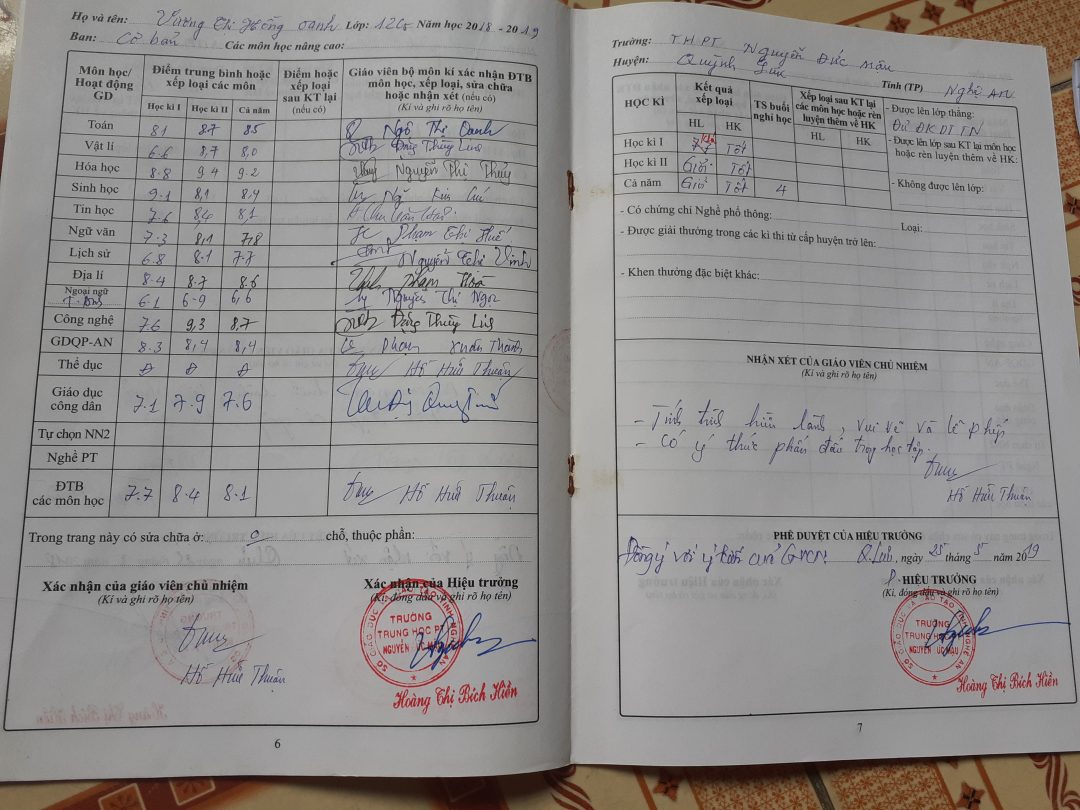 Họ và tên: Vương Thị Hồng Oanh Lớp: 12C5 Năm học 2018 - 2019
Ban: Cơ bản Các môn học nâng cao:
Môn học/ Hoạt động GD Điểm trung bình hoặc xếp loại các môn Điểm hoặc xếp loại sau KT lại (nếu có) Giáo viên bộ môn kí xác nhận ĐTB môn học, xếp loại, sửa chữa hoặc nhận xét (nếu có) (Kí và ghi rõ họ tên)
Học kì I Học kì II Cả năm
Toán 8.1 8.7 8.5 Ngô Thị Oanh
Vật lí 6.6 8,7 8,0 Đặng Thùy
Hóa học 8.8 9.4 9.2 Nguyễn Thị Thủy
Sinh học 9.1 8,1 8,4
Tin học 7.6 8,4 8,1
Ngữ văn 7.3 8,1 7,8 Phạm Thị Huế
Lịch sử 6.8 8.1 7.7 Nguyễn Thị Vinh
Địa lí 8.4 8.7 8.6 Phạm Hoà
Ngoại ngữ 6.1 6.9 6,6 Nguyễn Thị Ngọc
Công nghệ 7.6 9,3 8,7 Đặng Thùy
GDQP-AN 8.3 8,4 8,4 Phan Xuân Thành
Thể dục Đ Đ Đ Hồ Hữu Thuận
Giáo dục công dân 7.1 7.9 7.6
Tự chọn NN2
Nghề PT
ĐTB các môn học 7.7 8.4 8.1 Hồ Hữu Thuận
Trong trang này có sửa chữa ở: 0 chỗ, thuộc phần:
Xác nhận của giáo viên chủ nhiệm
(Kí và ghi rõ họ tên)
Hồ Hữu Thuận
Xác nhận của Hiệu trưởng
(Kí, đóng dấu và ghi rõ họ tên)
TRƯỜNG
TRUNG HỌC PT
Hoàng Thị Bích Hiền
6
Trường: THPT Nguyễn Đức Mậu
Huyện: Quỳnh Lưu Tỉnh (TP) Nghệ An
HỌC KÌ Kết quả xếp loại TS buổi nghỉ học Xếp loại sau KT lại các môn học hoặc rèn luyện thêm về HK
HL HK HL HK
Học kì I Khá Tốt
Học kì II Giỏi Tốt
Cả năm Giỏi Tốt 4
- Được lên lớp thẳng:
Đủ ĐK DT TN
- Được lên lớp sau KT lại môn học hoặc rèn luyện thêm về HK:
- Không được lên lớp:
- Có chứng chỉ Nghề phổ thông: Loại:
- Được giải thưởng trong các kì thi từ cấp huyện trở lên:
- Khen thưởng đặc biệt khác:
NHẬN XÉT CỦA GIÁO VIÊN CHỦ NHIỆM
(Kí và ghi rõ họ tên)
- Tính tình hiền lành, vui vẻ và lễ phép
- Có ý thức phấn đấu trong học tập.
Hồ Hữu Thuận
PHÊ DUYỆT CỦA HIỆU TRƯỞNG
Đồng ý với ý kiến của GVCN. Q.Lưu, ngày 25 tháng 5 năm 2019
P. HIỆU TRƯỞNG
(Kí, đóng dấu và ghi rõ họ tên)
TRƯỜNG
Hoàng Thị Bích Hiền
7